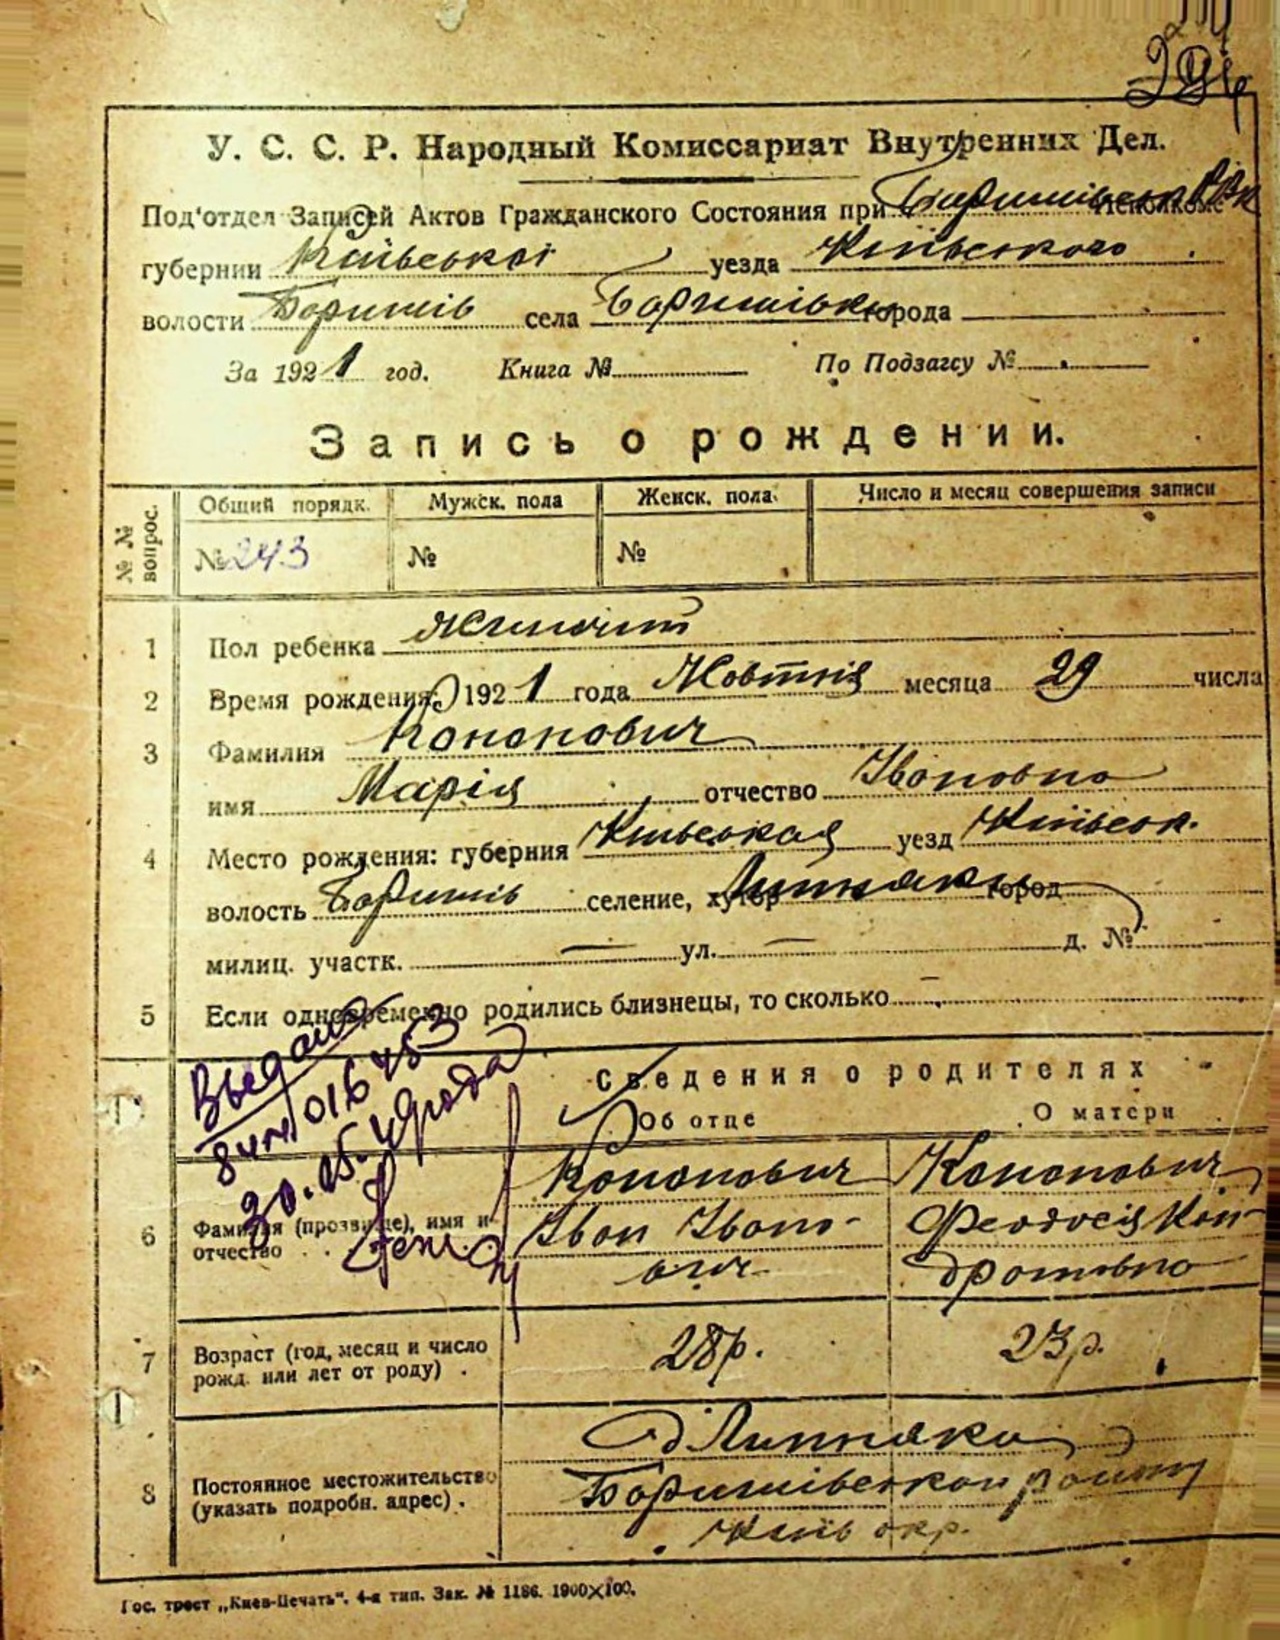 294
У. С. С. Р. Народный Комиссариат Внутренних Дел.
Под'отдел Записей Актов Гражданского Состояния при Баришівськ. РВК
губернии Київської уезда Київського
волости Баришів села Баришівки города
За 1921 год. Книга № По Подзагсу №
Запись о рождении.
№№ вопрос. Общий порядк. Мужск. пола Женск. пола Число и месяц совершения записи
№ 243 № №
1 Пол ребенка жиночит
2 Время рождения: 1921 года Жовтня месяца 29 числа
3 Фамилия Кононович
имя Марія отчество Івановна
4 Место рождения: губерния Київськая уезд Київськ.
волость Баришів селение, хутор Липняки город
милиц. участк. — ул. — д. №
5 Если одновременно родились близнецы, то сколько -
Выдано
016453
30.05.49 года
Сведения о родителях
Об отце О матери
6 Фамилия (прозвище), имя и отчество . . Кононович Іван Івано- вич Кононович Феодосія Кон- дратовна
7 Возраст (год, месяц и число рожд. или лет от роду) . 28р. 23р.
8 Постоянное местожительство (указать подробн. адрес) . Липняки
Баришівськой району
Київ окр.
Гос. трест „Киев-Печать“. 4-я тип. Зак. № 1186. 1900×100.